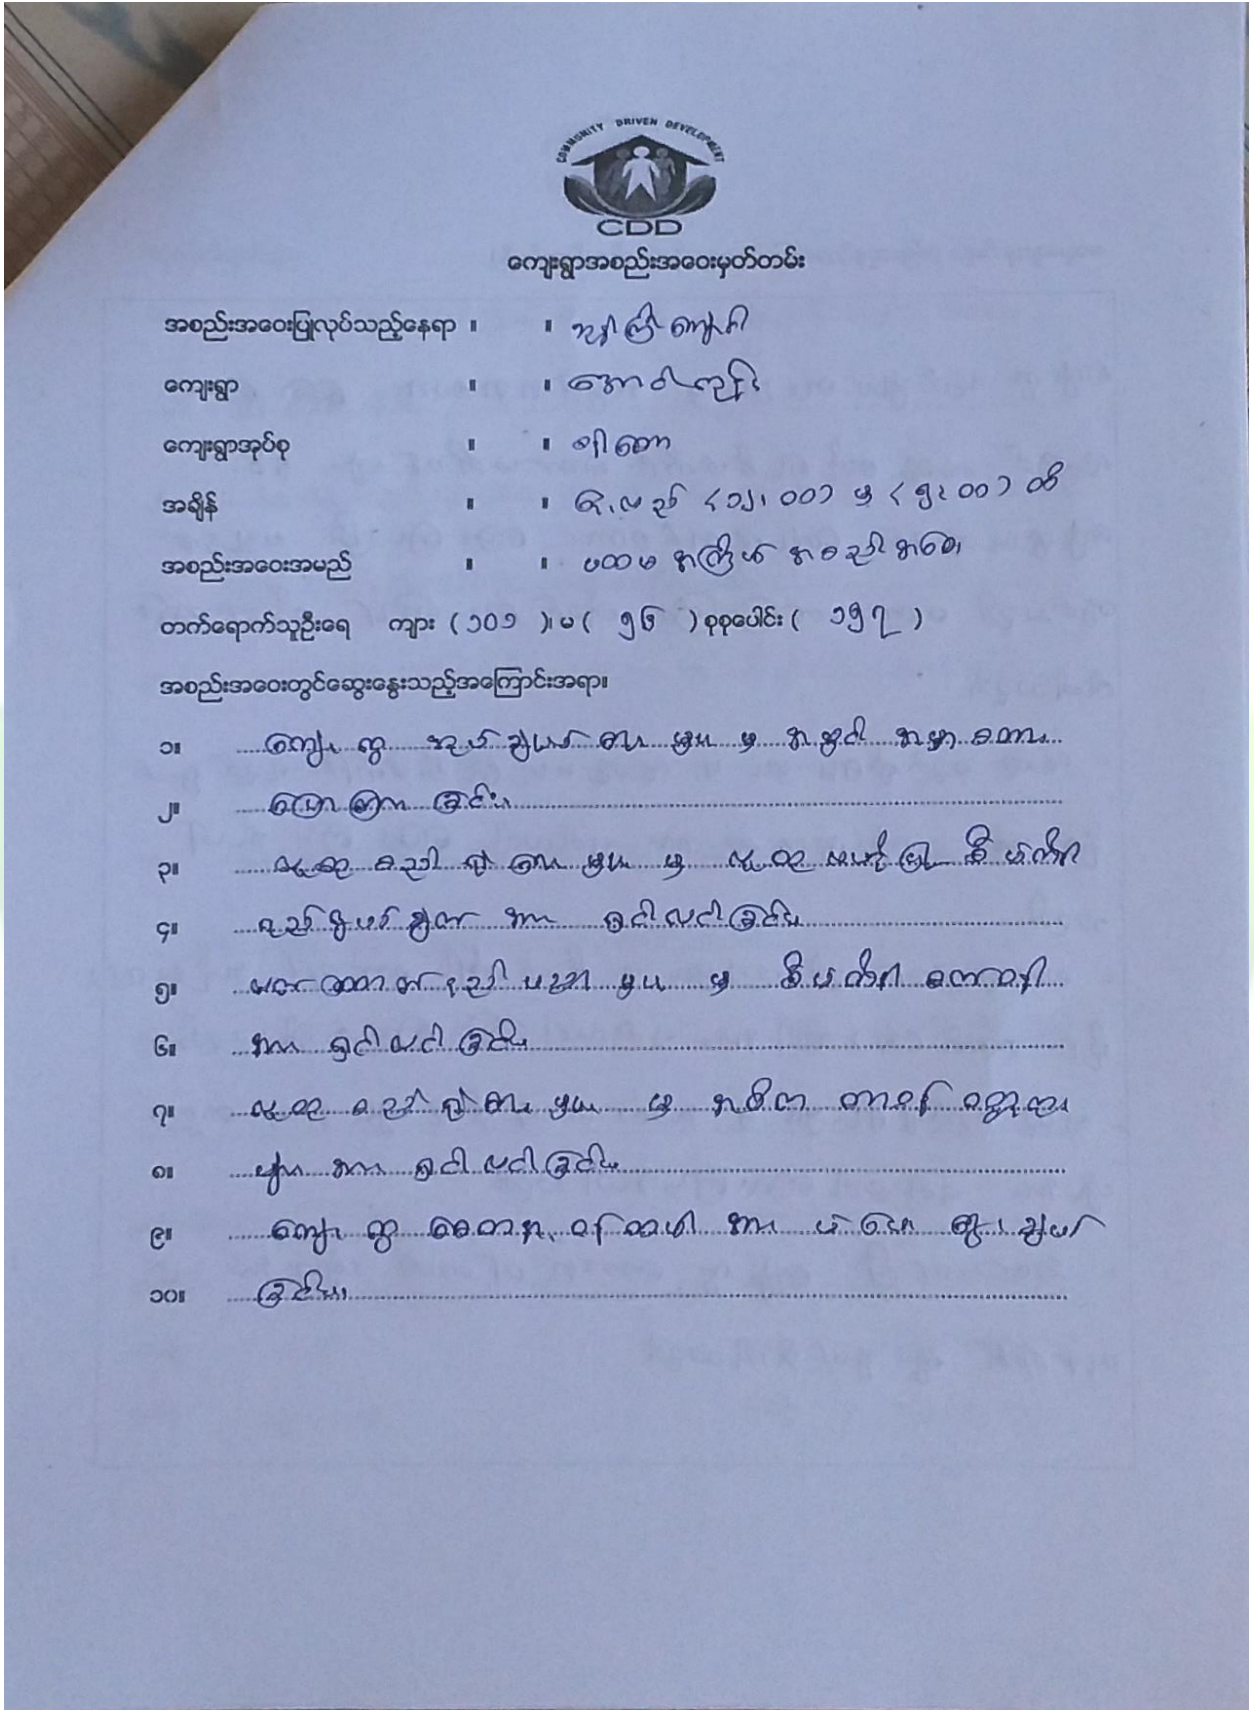 COMMUNITY DRIVEN DEVELOPMENT
CDD
ကျေးရွာအစည်းအဝေးမှတ်တမ်း
အစည်းအဝေးပြုလုပ်သည့်နေရာ ။ ။ ဘုန်ကြီးကျောင်း
ကျေးရွာ ။ ။
ကျေးရွာအုပ်စု ။ ။
အချိန် ။ ။ နေ့လည် (၁၂း၀၀) မှ (၅း၀၀) ထိ
အစည်းအဝေးအမည် ။ ။ ပထမ အကြိမ် အစည်း အဝေး
တက်ရောက်သူဦးရေ ကျား (၁၀၁ )၊ မ ( ၅၆ ) စုစုပေါင်း ( ၁၅၇ )
အစည်းအဝေးတွင်ဆွေးနွေးသည့်အကြောင်းအရာ။
၁။ ကျေး ရွာ အုပ်ချုပ်ရေး မှူး မှ အဖွင့် အမှာ စကား
၂။ ပြောကြား ခြင်း။
၃။ လူထု စည်းရုံးရေး မှူး မှ လူထု ဗဟိုပြု စီမံကိန်း
၄။ ရည်ရွယ်ချက် အား ရှင်းလင်းခြင်း။
၅။ မှူး မှ စီမံကိန်း
၆။ အား ရှင်းလင်းခြင်း။
၇။ လူထု စည်းရုံးရေး မှူး မှ အဓိက တာဝန် ဝတ္တရား
၈။ များ အား ရှင်းလင်းခြင်း။
၉။ ကျေး ရွာ စေတနာ့ ဝန်ထမ်း အား ရွေးချယ်
၁၀။ ခြင်း။